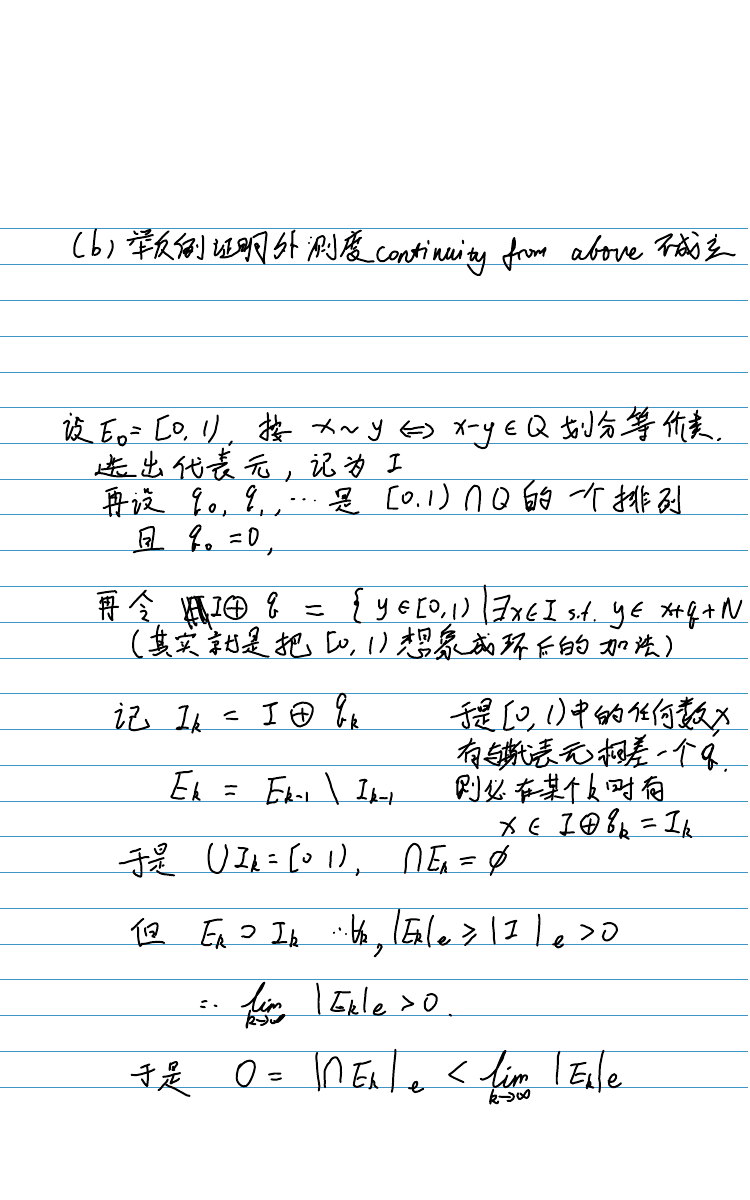 (b) 举反例证明外测度 continuity from above 不成立
设 E₀ = [0, 1), 按 x ~ y ⇔ x-y ∈ Q 划分等价类.
选出代表元, 记为 I
再设 q₀, q₁, ⋯ 是 [0.1) ∩ Q 的一个排列
且 q₀ = 0,
再令 I ⊕ q = { y ∈ [0,1) | ∃x ∈ I s.t. y ∈ x+q+N
(其实就是把 [0, 1) 想象成环后的加法)
记 Iₖ = I ⊕ qₖ
于是 [0, 1) 中的任何数 x
有与代表元相差一个 q,
Eₖ = Eₖ₋₁ \ Iₖ₋₁
则必在某个 k 时有
x ∈ I ⊕ qₖ = Iₖ
于是 ∪Iₖ = [0 1), ∩Eₖ = ∅
但 Eₖ ⊃ Iₖ ∴ ∀k, |Eₖ|ₑ ≥ |I|ₑ > 0
∴ lim k→∞ |Eₖ|ₑ > 0.
于是 0 = |∩Eₖ|ₑ < lim k→∞ |Eₖ|ₑ